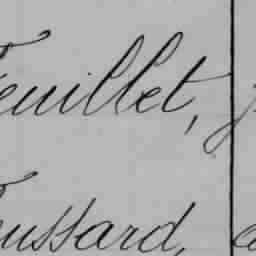 Feuillet,
Foussard,